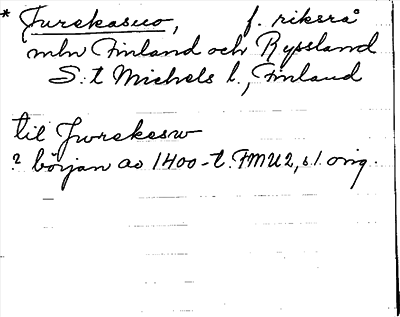 * Jurekasuo, f. riksrå
mln Finland och Ryssland
S:t Michels l., Finland
til Jurekesw
? början av 1400-t. FMU2, s1. orig.